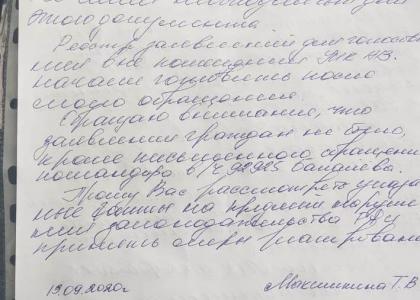 этого документа.
Реестр заявлений для голосова-
ния вне помещения УИК
начали готовить после
моего обращения.
Обращаю внимание, что
заявлений граждан не было,
кроме письменного обращени
командира в/ч
Прошу Вас рассмотреть указан-
ные факты на предмет наруше-
ний законодательства РФ и
принять меры реагирован
19.09.2020г Т.В